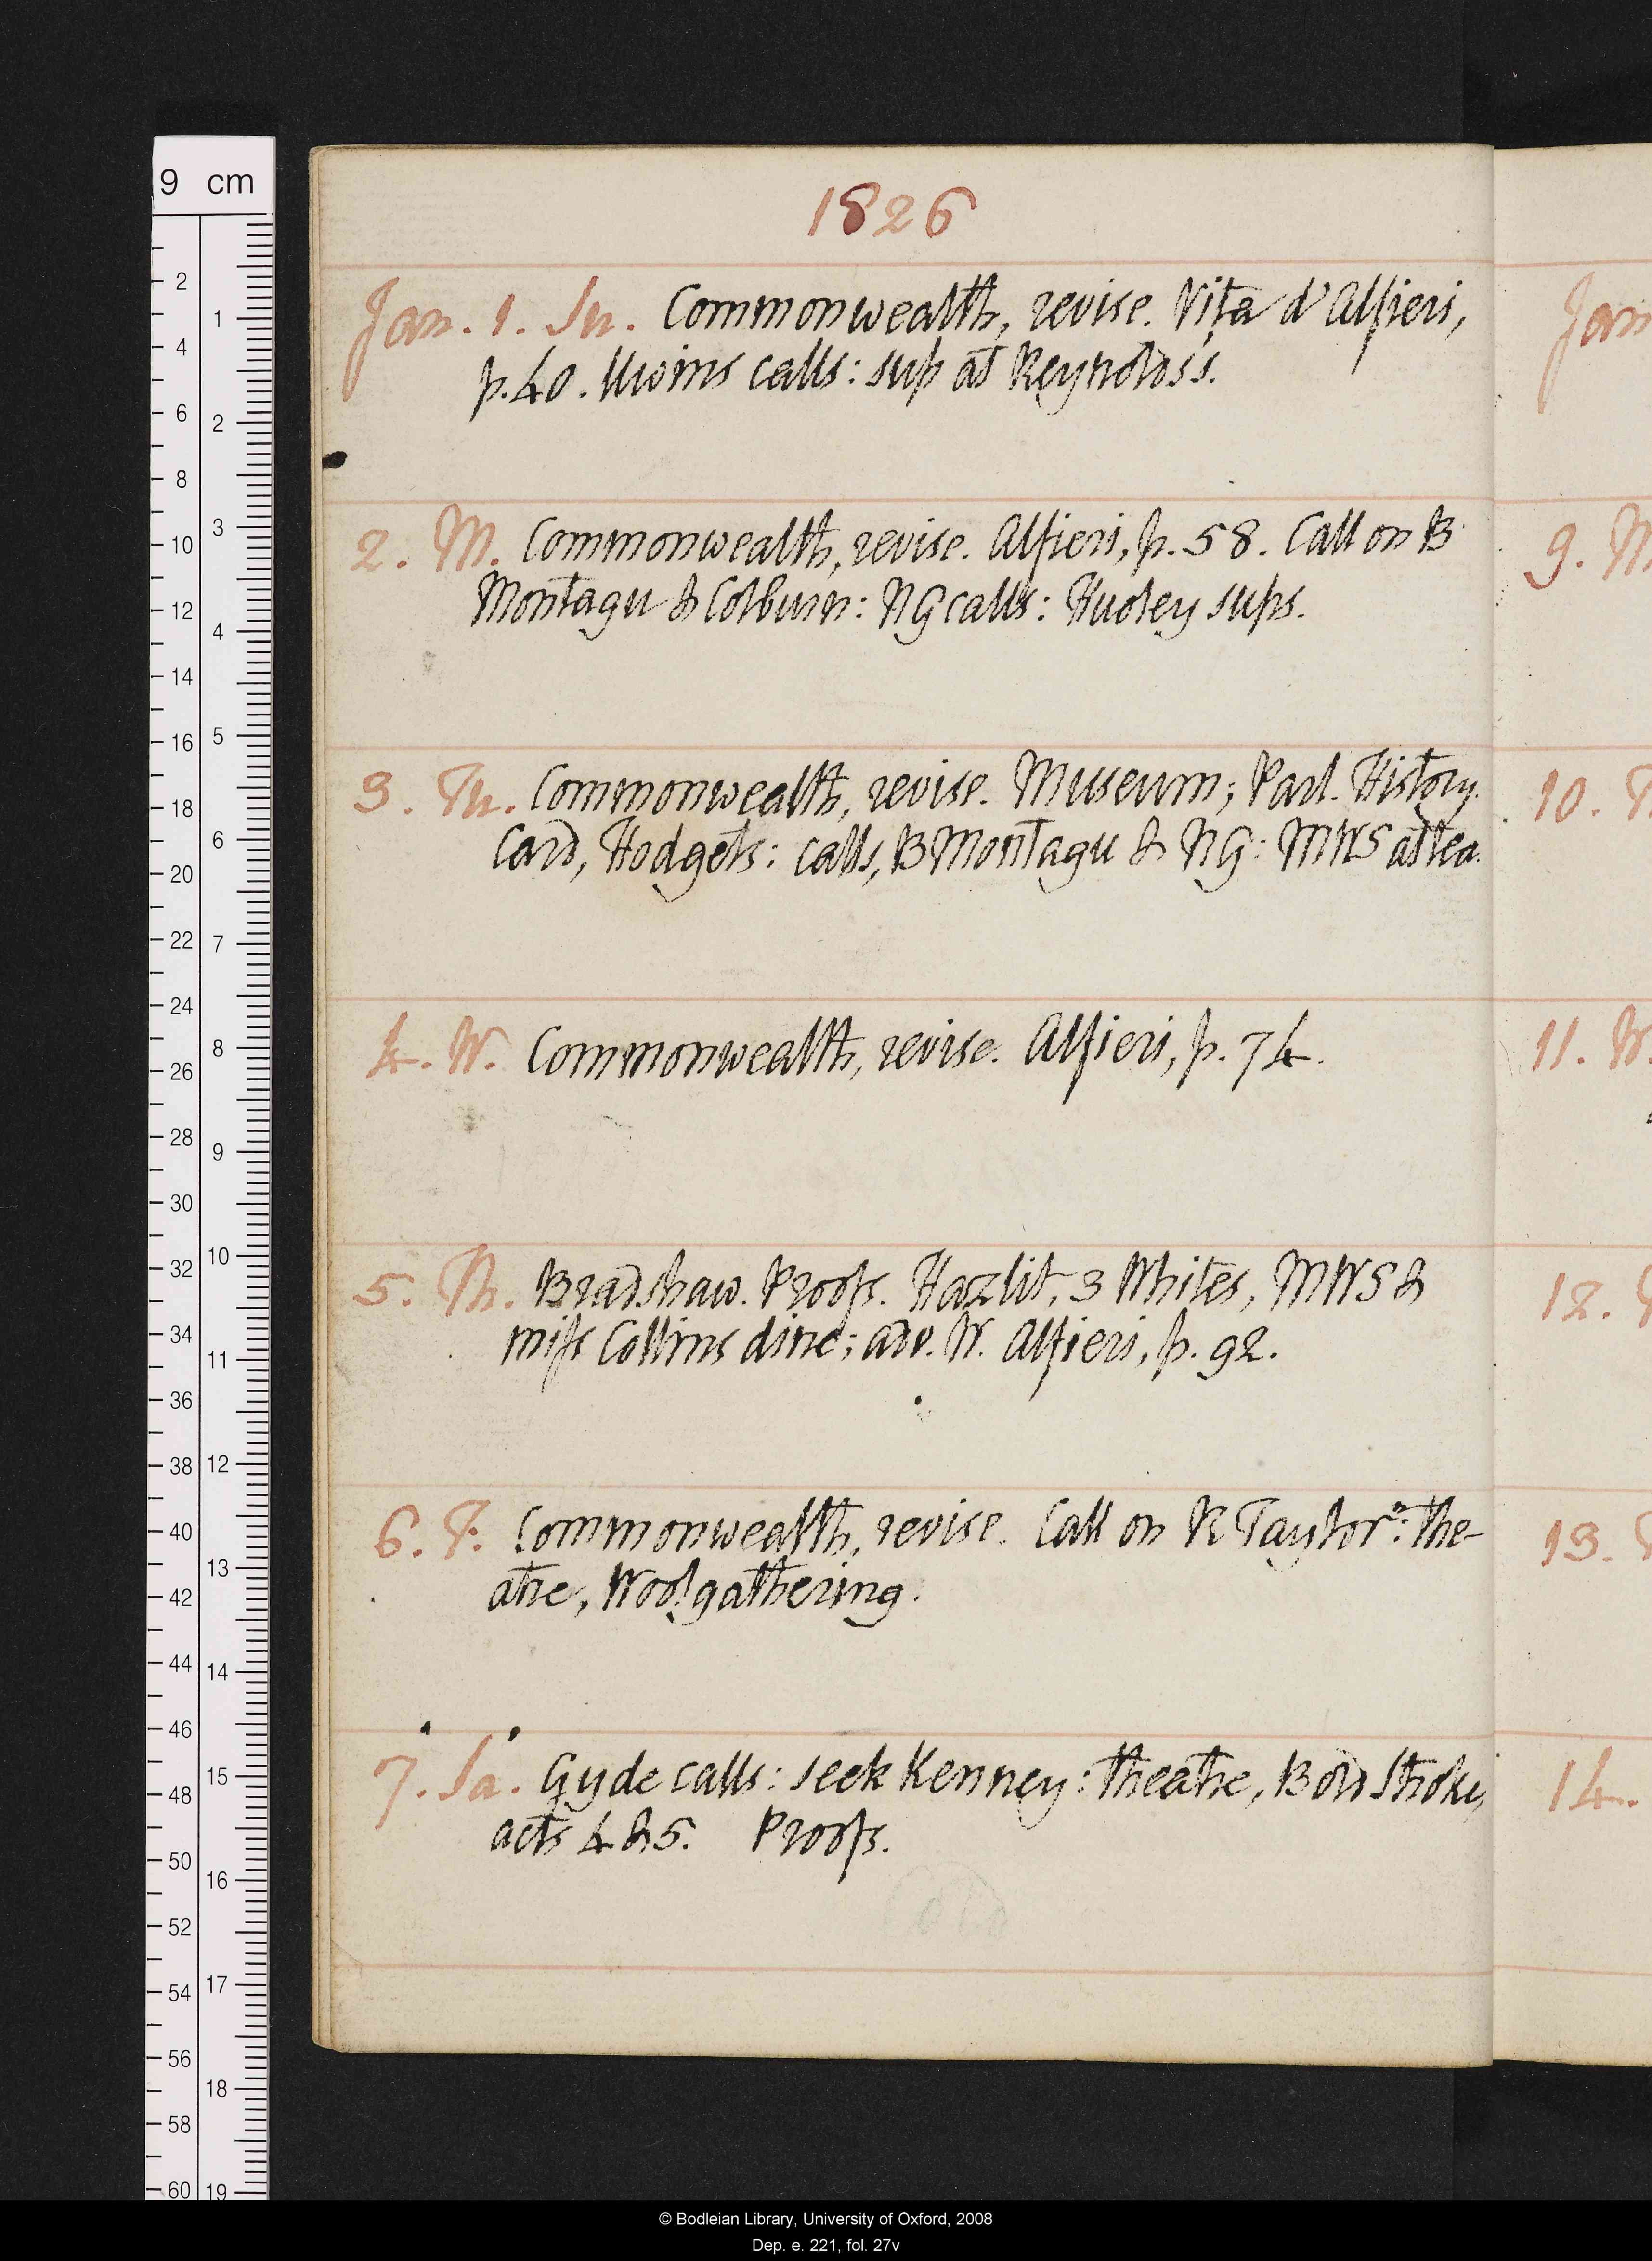 1826
Jan. 1. Su. Commonwealth, revise. Vita d'Alfieri,
p. 40. Uwins calls: sup at Reynolds's.
2. M. Commonwealth, revise. Alfieri, p. 58. Call on B
Montagu & Colburn: NG calls: Hudley sups.
3. Tu. Commonwealth, revise. Museum; Parl. History.
Card, Hodgets: calls, B Montagu & NG: MWS at tea.
4. W. Commonwealth, revise. Alfieri, p. 74.
5. Th. Bradshaw. Proofs. Hazlit, 3 Whites, MWS &
miss Collins dine; adv. W. Alfieri, p. 92.
6. F. Commonwealth, revise. Call on R Taylor²: the-
atre, Woolgathering.
7. Sa. Gyde calls: seek Kenney: theatre, Bold Stroke,
acts 4 & 5. Proofs.
Jan
9. M
10. T
11. W.
12.
13.
14.
9 cm
2
4
6
8
10
12
14
16
18
20
22
24
26
28
30
32
34
36
38
40
42
44
46
48
50
52
54
56
58
60
1
2
3
4
5
6
7
8
9
10
11
12
13
14
15
16
17
18
19
© Bodleian Library, University of Oxford, 2008
Dep. e. 221, fol. 27v